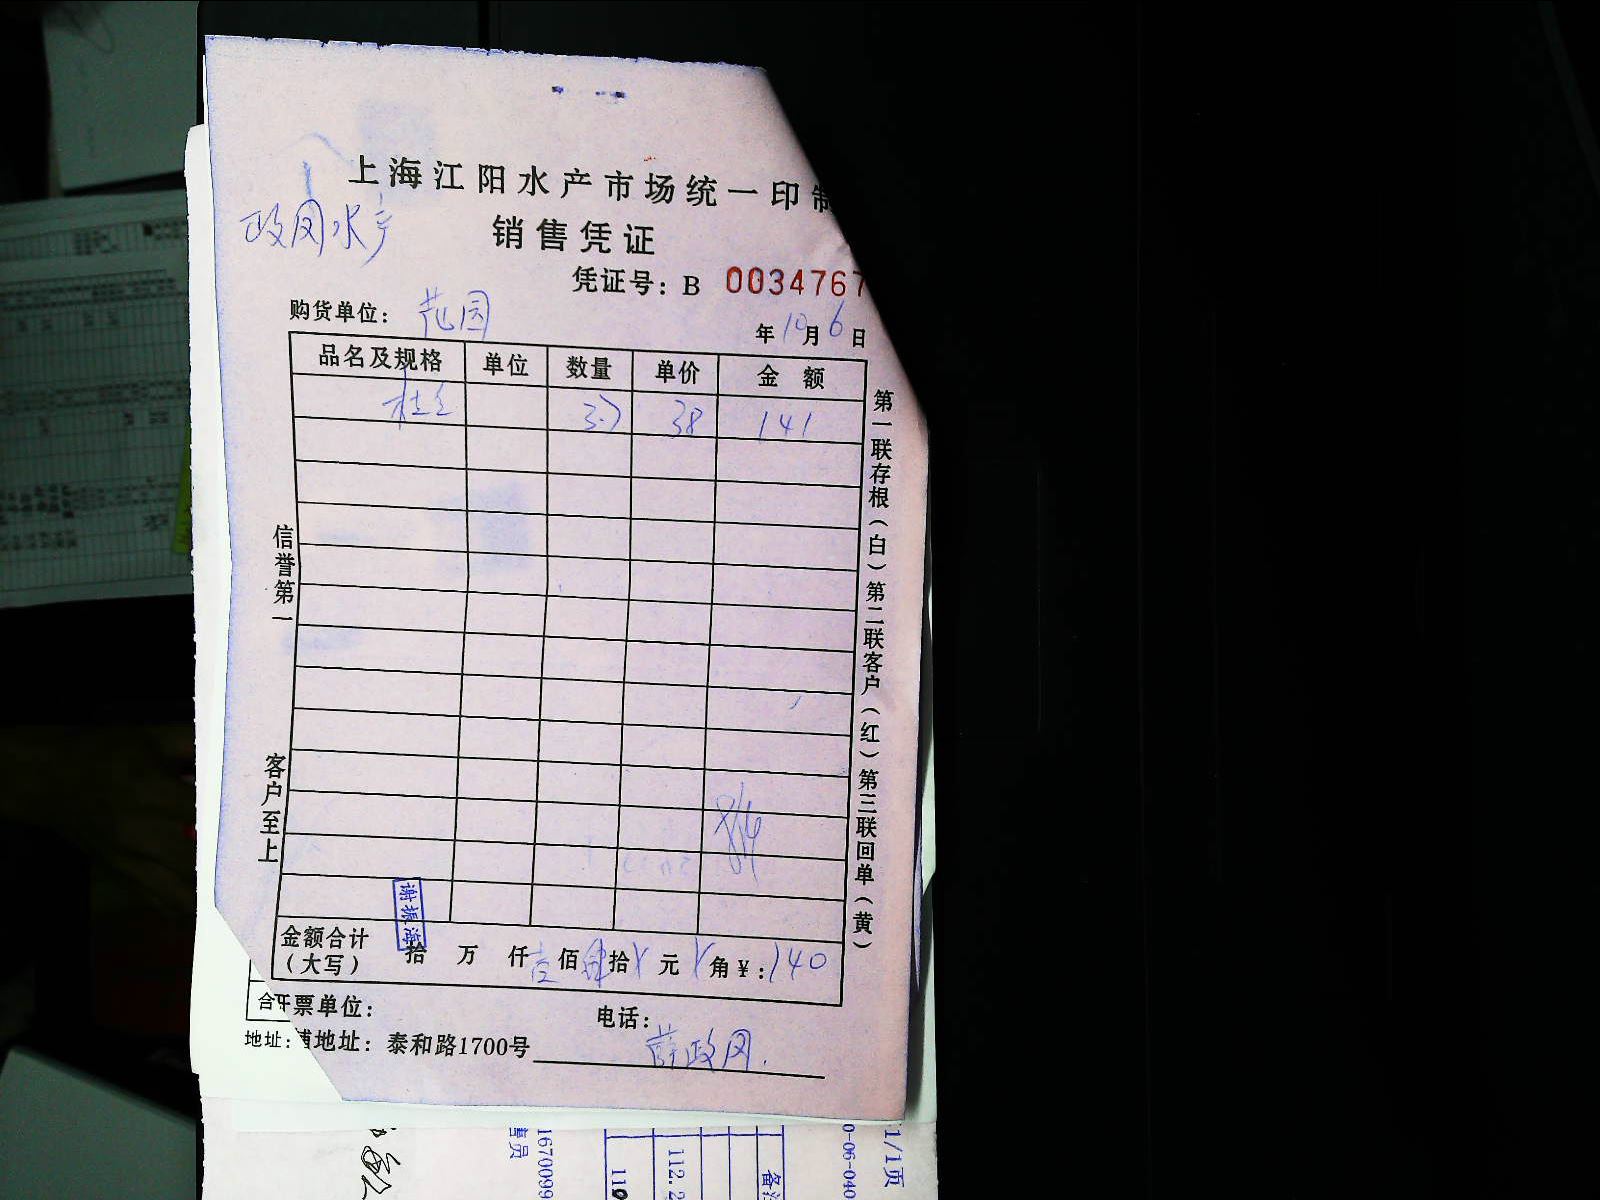 上海江阳水产市场统一印制
政网水产
销售凭证
凭证号：B 0034767
购货单位：范园
年10月6日
品名及规格 单位 数量 单价 金额
3.7 38 141
第一联存根（白）第二联客户（红）第三联回单（黄）
信誉第一
客户至上
谢振海
金额合计（大写） 拾 万 仟壹佰肆拾 元 角￥：140
开票单位：
电话：
地址：泰和路1700号
薛政网
合
地址：
售员
1670099
112.2
备注
0-06-040
1/1页